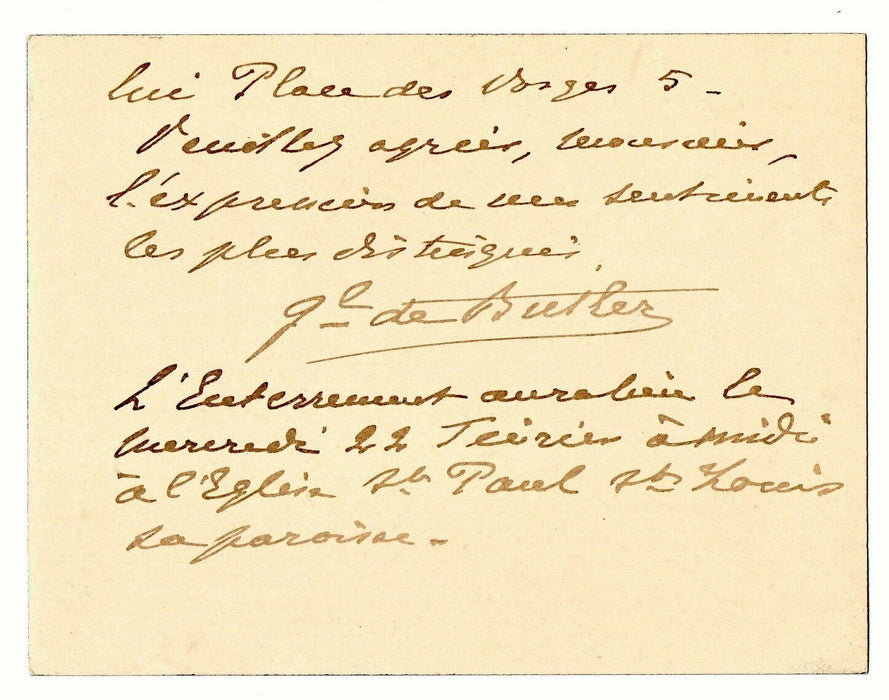 lui Place des Vosges 5 -
Veuillez agréer, monsieur,
l'expression de mes sentiments
les plus distingués.
Gl de Butler
L'Enterrement aura lieu le
mercredi 22 Février à midi
à l'Eglise St Paul St Louis
sa paroisse -